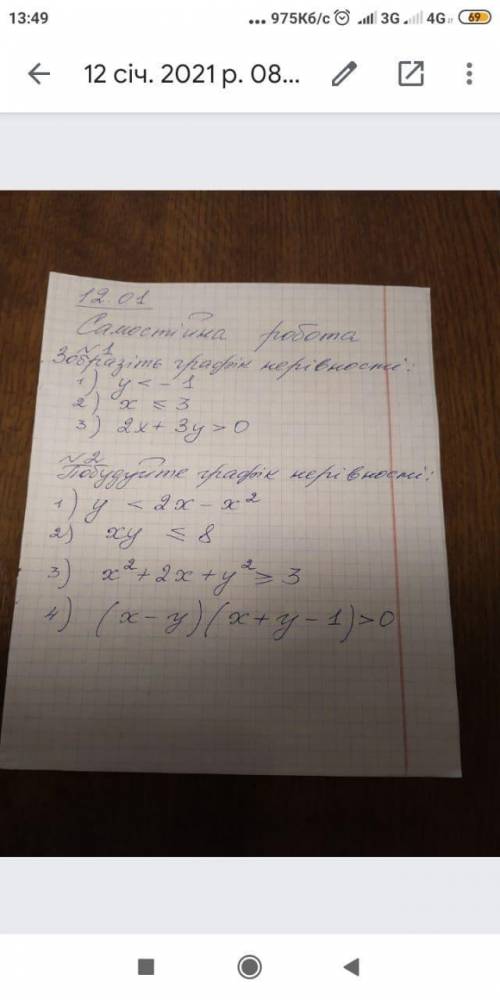 13:49 ... 975Кб/с 3G 4G 69
12 січ. 2021 р. 08...
12.01
Самостійна робота
№1
Зобразіть графік нерівності:
1) y < - 1
2) x ≤ 3
3) 2x + 3y > 0
№2
Побудуйте графік нерівності:
1) y < 2x - x²
2) xy ≤ 8
3) x² + 2x + y² ≥ 3
4) (x - y)(x + y - 1) > 0